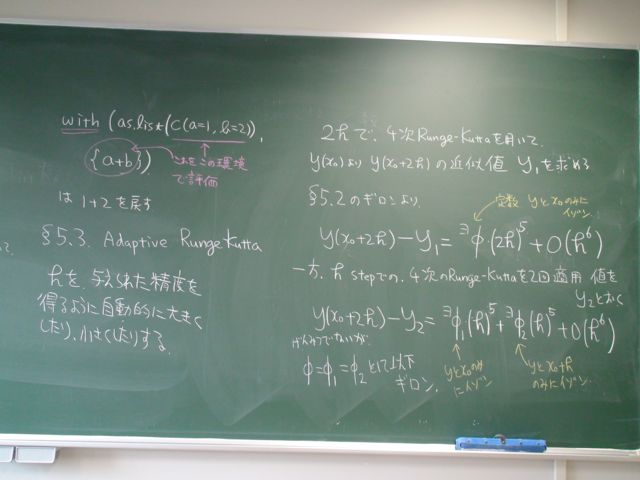 with (as.list(c(a=1, b=2)),
{a+b})
これをこの環境
で評価
は 1+2 を戻す
§5.3. Adaptive Runge Kutta
hを、与えられた精度を
得るように自動的に大きく
したり、小さくしたりする.
2hで、4次Runge-Kuttaを用いて.
y(x₀)より y(x₀+2h) の近似値 y₁を求める
§5.2 のギロンより.
定数 yとx₀のみに
イゾン
y(x₀+2h) − y₁ = ∃φ・(2h)⁵ + O(h⁶)
一方. h stepでの. 4次のRunge-Kuttaを2回適用 値を
y₂とおく
y(x₀+2h) − y₂ = ∃φ₁(h)⁵ + ∃φ₂(h)⁵ + O(h⁶)
げんみつでないが.
φ = φ₁ = φ₂ として以下
ギロン.
yとx₀のみ
にイゾン
yとx₀+h
のみにイゾン.